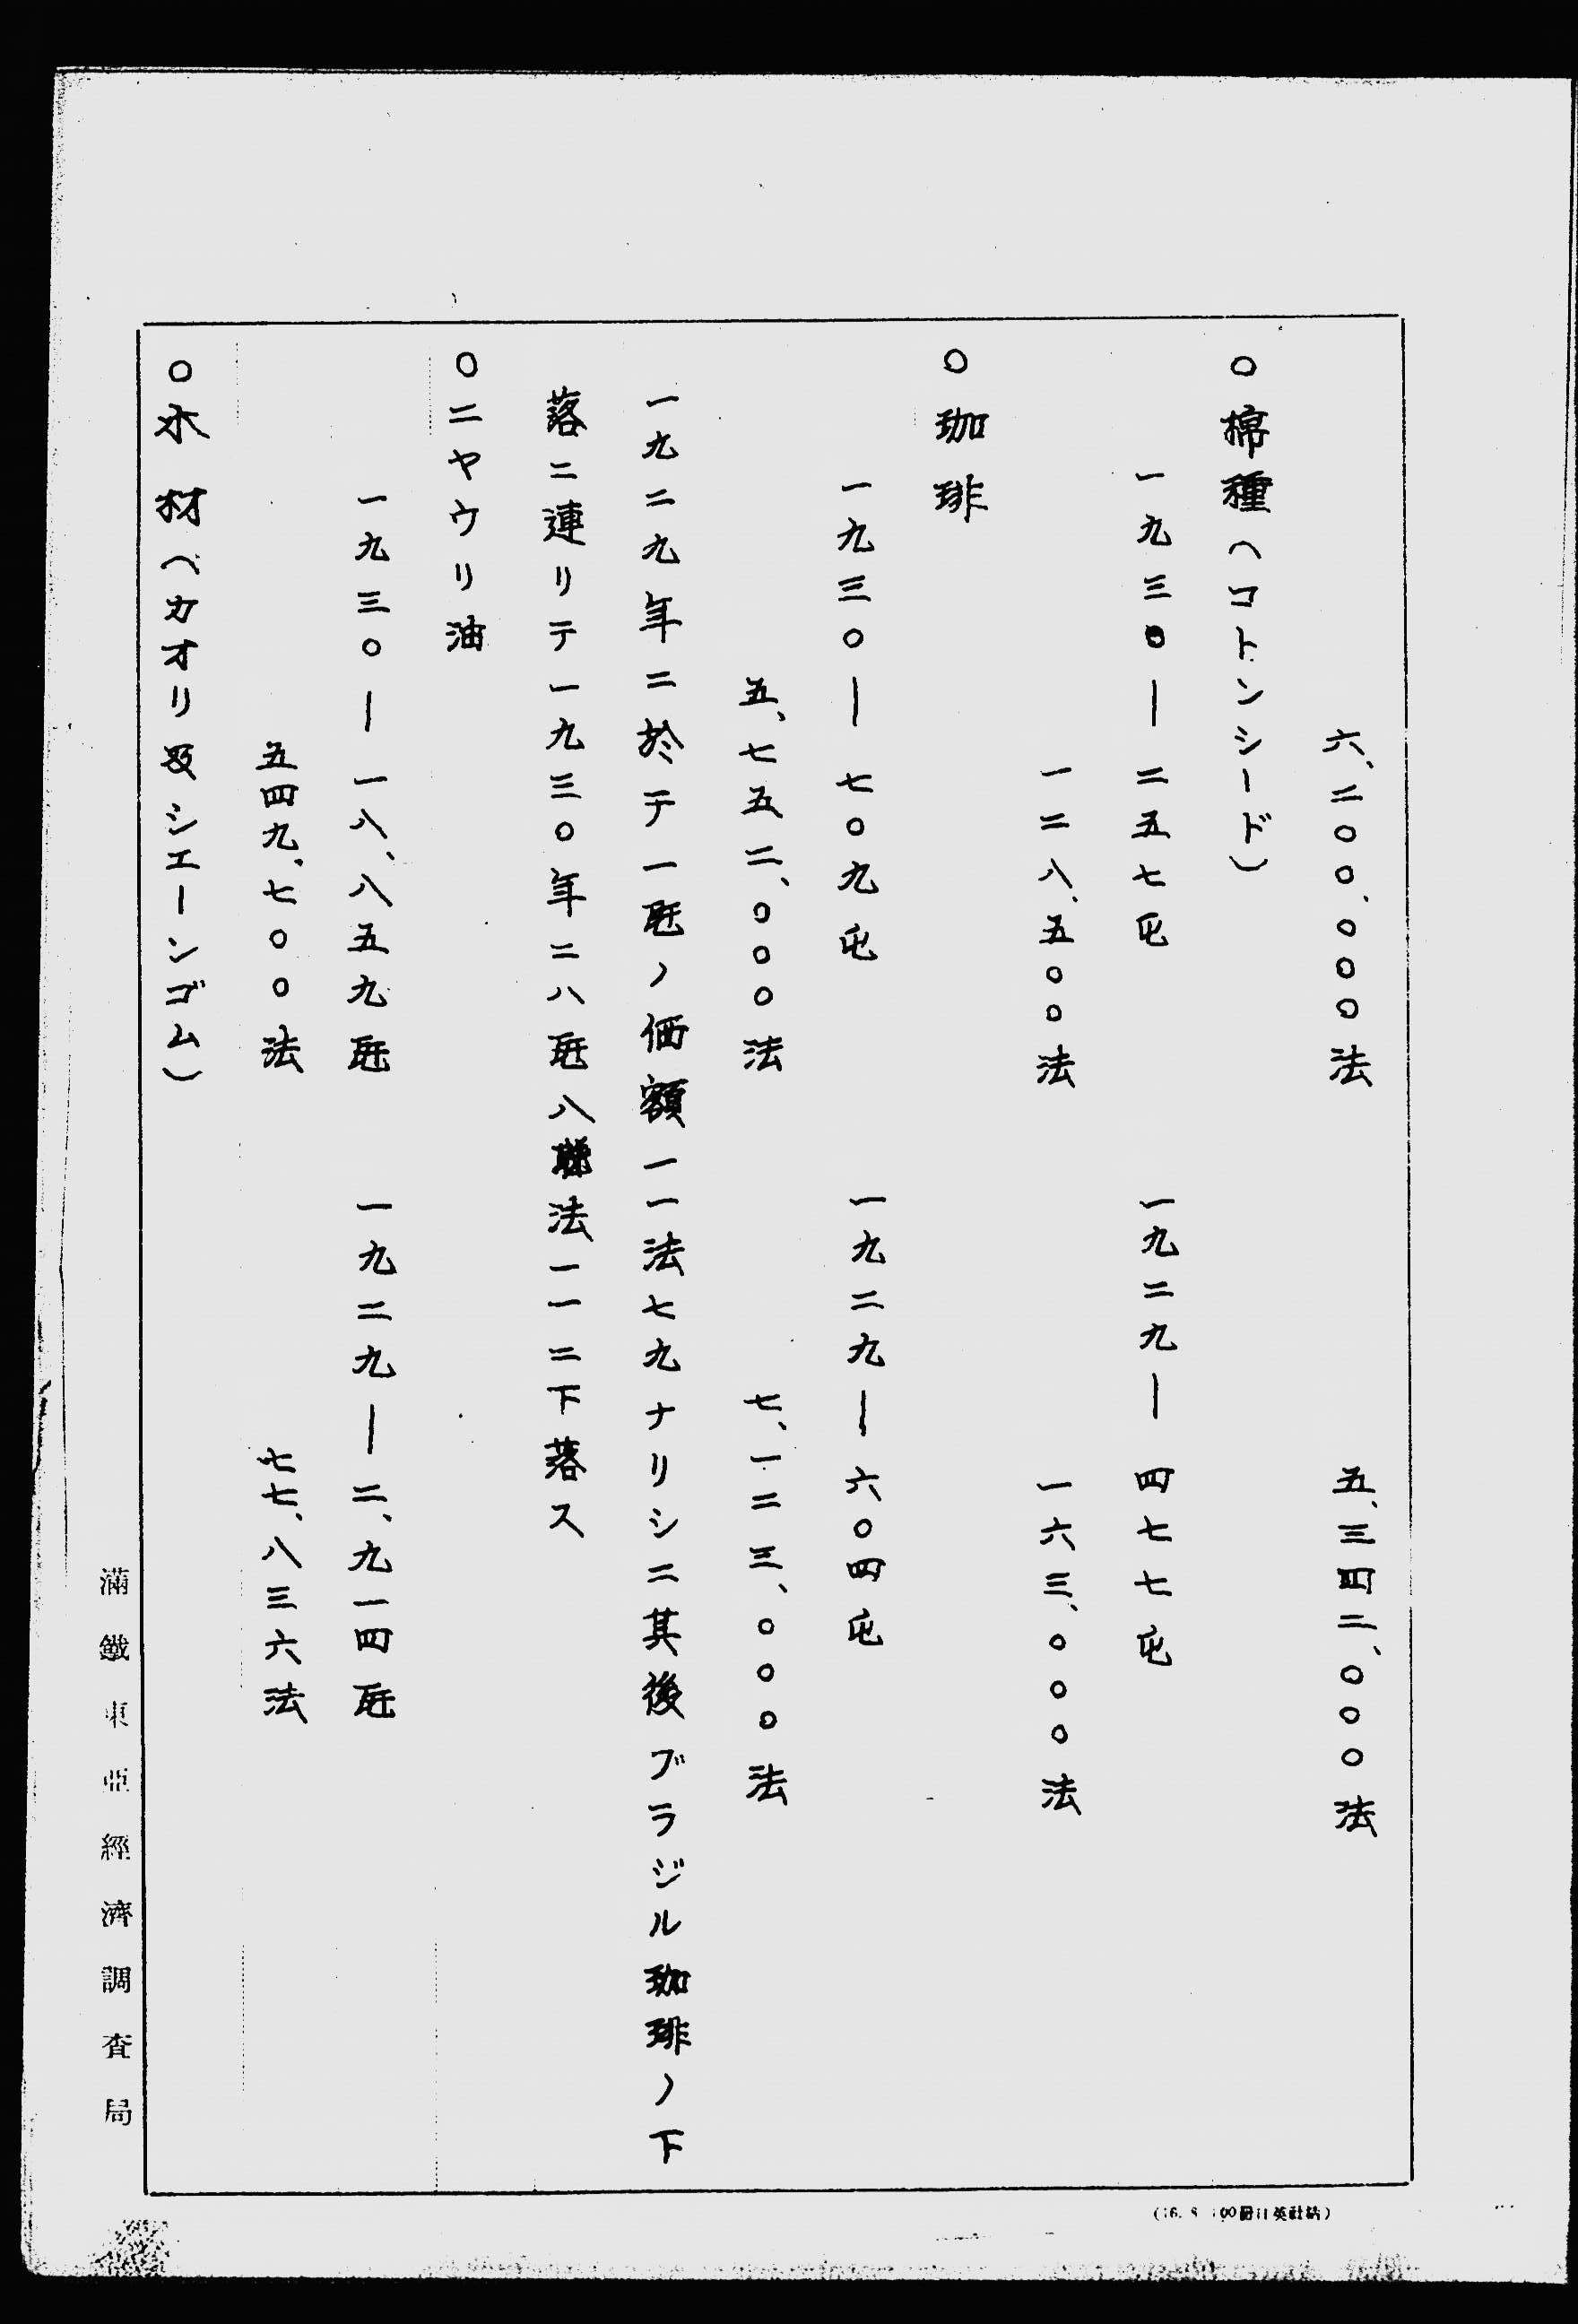 六、二〇〇、〇〇〇法　五、三四二、〇〇〇法
〇棉種（コトンシード）
一九三〇｜二五七瓲　一九二九｜四七七瓲
一二八、五〇〇法　一六三、〇〇〇法
〇珈琲
一九三〇｜七〇九瓲　一九二九｜六〇四瓲
五、七五二、〇〇〇法　七、一二三、〇〇〇法
一九二九年ニ於テ一瓩ノ価額一一法七九ナリシニ其後ブラジル珈琲ノ下
落ニ連リテ一九三〇年ニハ瓩八法一一ニ下落ス
〇ニヤウリ油
一九三〇｜一八、八五九瓩　一九二九｜二、九一四瓩
五四九、七〇〇法　七七、八三六法
〇木材（カオリ及シエーンゴム）
滿鐵東亞經濟調査局